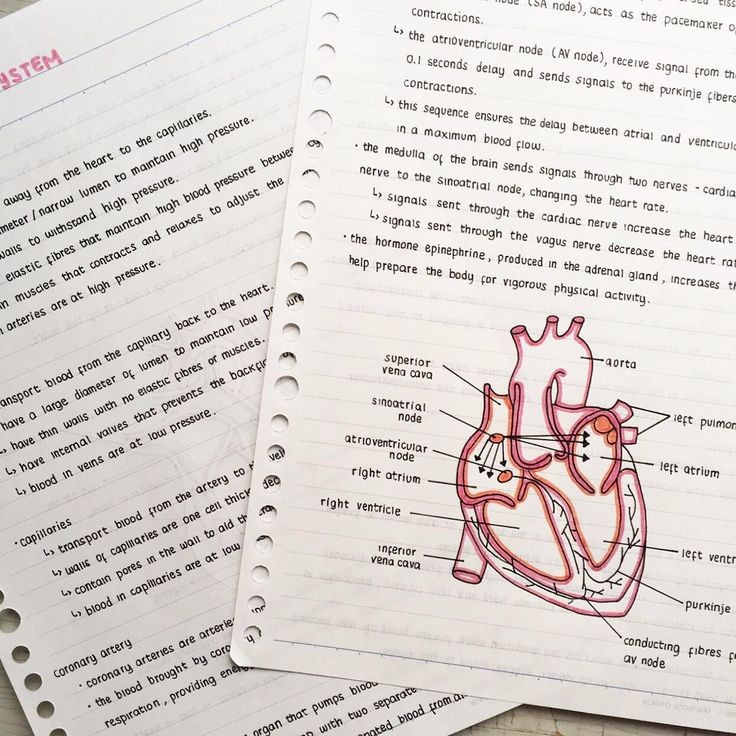 YSTEM
away from the heart to the capillaries.
meter / narrow lumen to maintain high pressure.
walls to withstand high pressure.
elastic fibres that maintain high blood pressure betwee
n muscles that contracts and relaxes to adjust the
arteries are at high pressure.
ansport blood from the capillary back to the heart.
have a large diameter of lumen to maintain low pressure
↳ have thin walls with no elastic fibres or muscles.
↳ have internal valves that prevents the backflo
↳ blood in veins are at low pressure.
• capillaries
↳ transport blood from the artery to
↳ walls of capillaries are one cell thick
↳ contain pores in the wall to aid th
↳ blood in capillaries are at low
coronary artery
• coronary arteries are arterie
• the blood brought by coro
respiration, providing ener
organ that pumps blood
with two separate
nated blood from
node (SA node), acts as the pacemaker of
contractions.
↳ the atrioventricular node (AV node), receive signal from th
0.1 seconds delay and sends signals to the purkinje fibers
contractions.
↳ this sequence ensures the delay between atrial and ventricula
in a maximum blood flow.
• the medulla of the brain sends signals through two nerves - cardia
nerve to the sinoatrial node, changing the heart rate.
↳ signals sent through the cardiac nerve increase the heart
↳ signals sent through the vagus nerve decrease the heart rat
• the hormone epinephrine, produced in the adrenal gland, increases th
help prepare the body for vigorous physical activity.
superior
vena cava
sinoatrial
node
atrioventricular
node
right atrium
right ventricle
inferior
vena cava
aorta
left pulmon
left atrium
left ventr
purkinje
conducting fibres f
av node